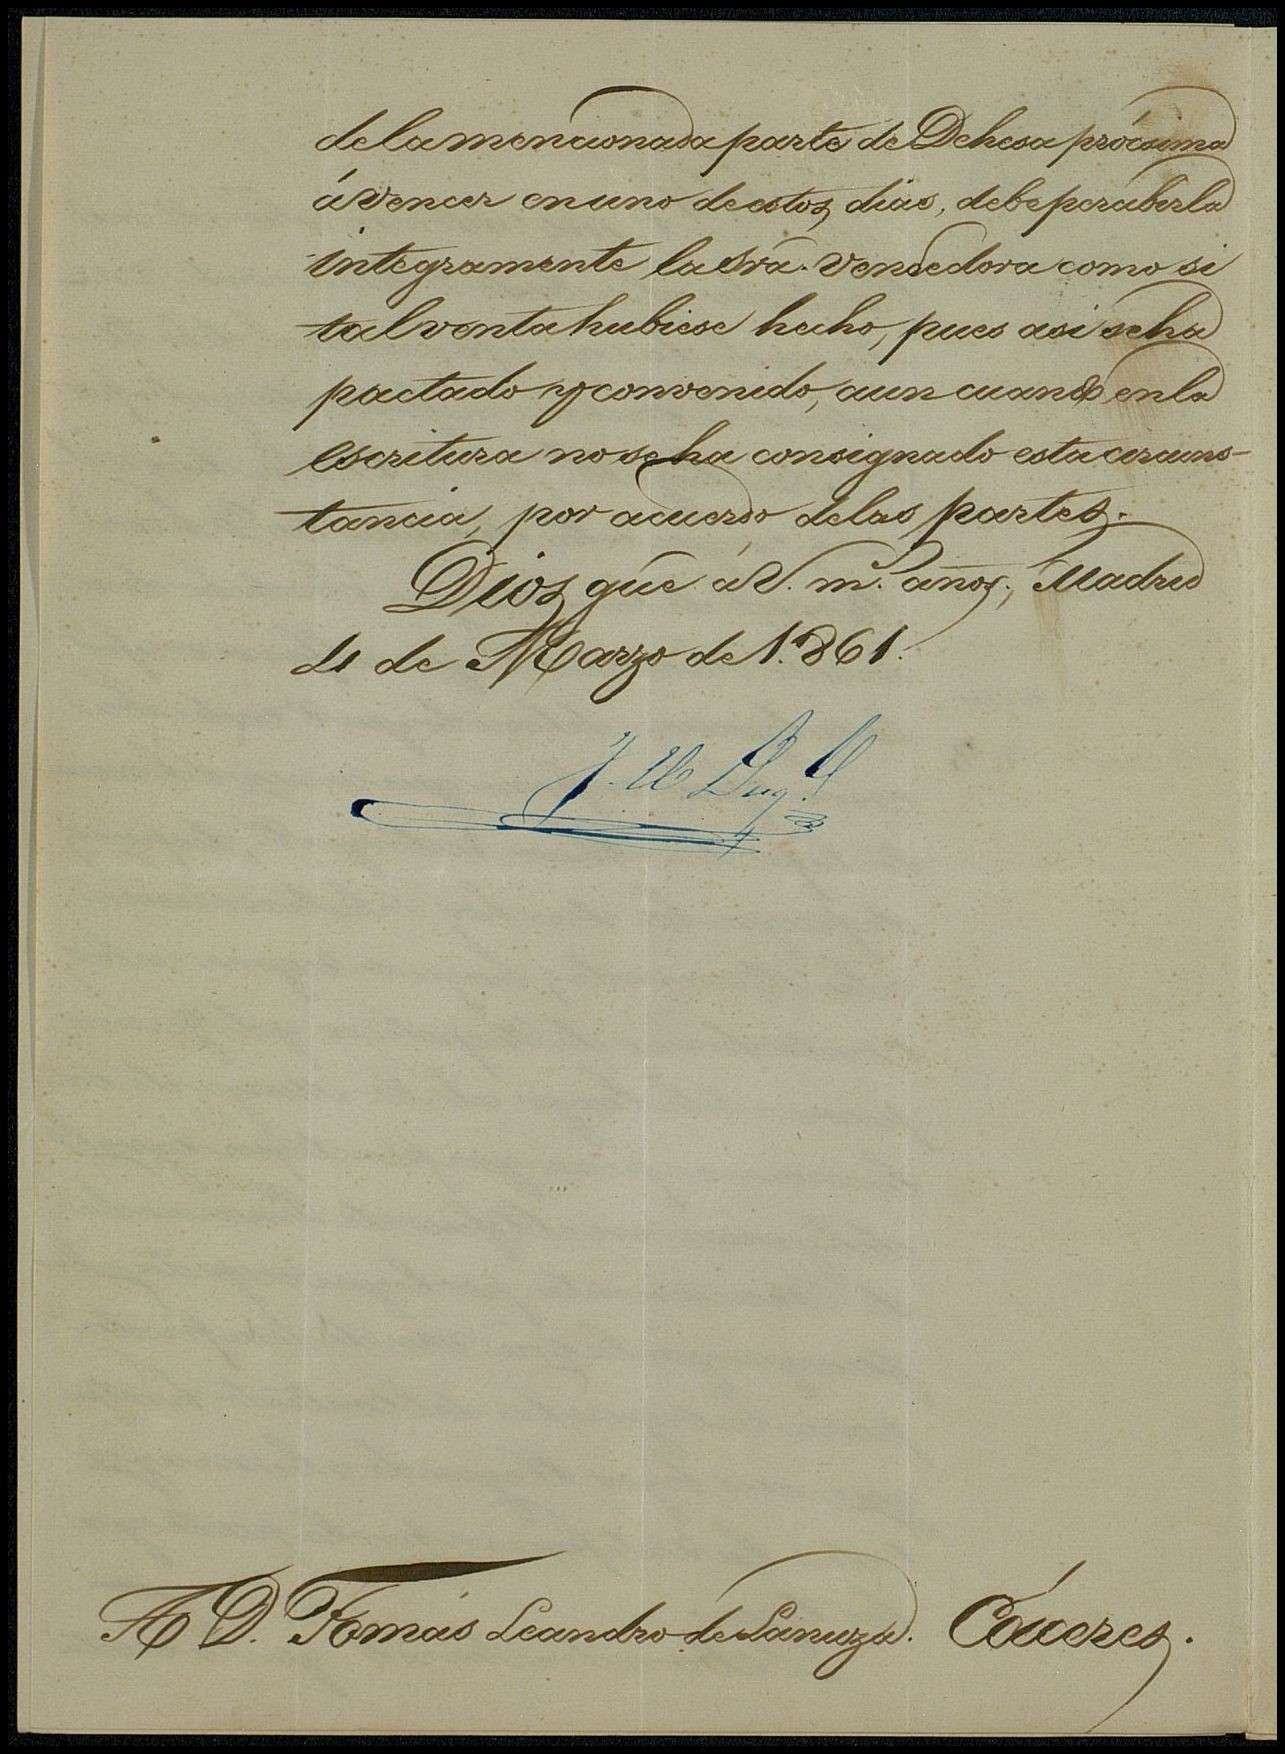 de la mencionada parte de Dehesa prócsima
á vencer en uno de estos dias, debe percibirla
integramente la Srā. Vendedora como si
tal venta hubiese hecho, pues asi se ha
pactado y convenido, aun cuando en la
escritura no se ha consignado esta circuns-
tancia, por acuerdo de las partes.
Dios gue á V. m.ˢ años, Madrid
4 de Marzo de 1.861.
A D. Tomás Leandro de Lanuza. Cáceres.